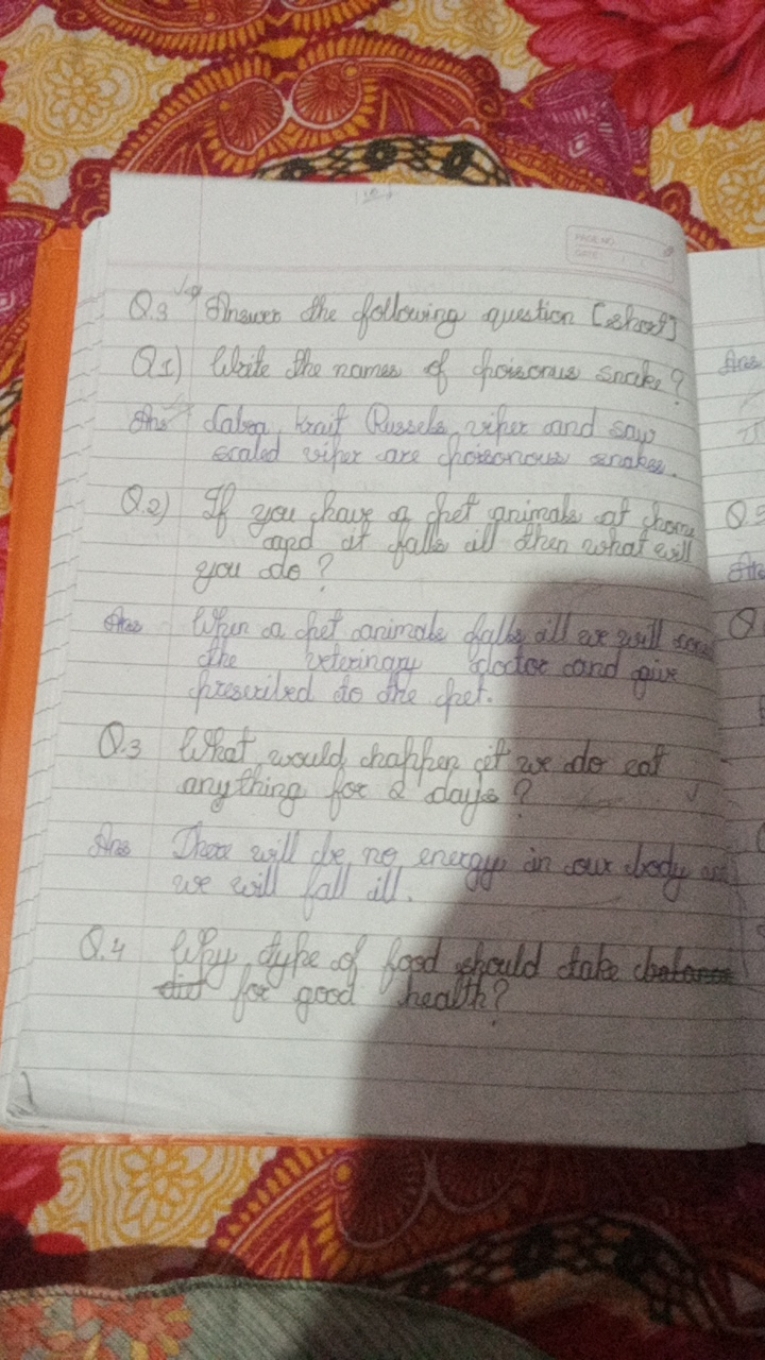 PAGE NO.
DATE:
Q.3 Answer the following question [short]
Q1) Write the names of poisonus snake?
Ans Cabra, krait Russels viper and saw
scaled viper are poisonous snakes.
Q.2) If you have a pet animals at home
and it falls ill then what will
you do?
Ans When a pet animals falls ill we will
the veterinary doctor and give
prescribed to the pet.
Q.3 What would happen if we do eat
anything for 2 days?
Ans There will be no energy in our body and
we will fall ill.
Q.4 Why type of food should take balance
diet for good health?
Ans